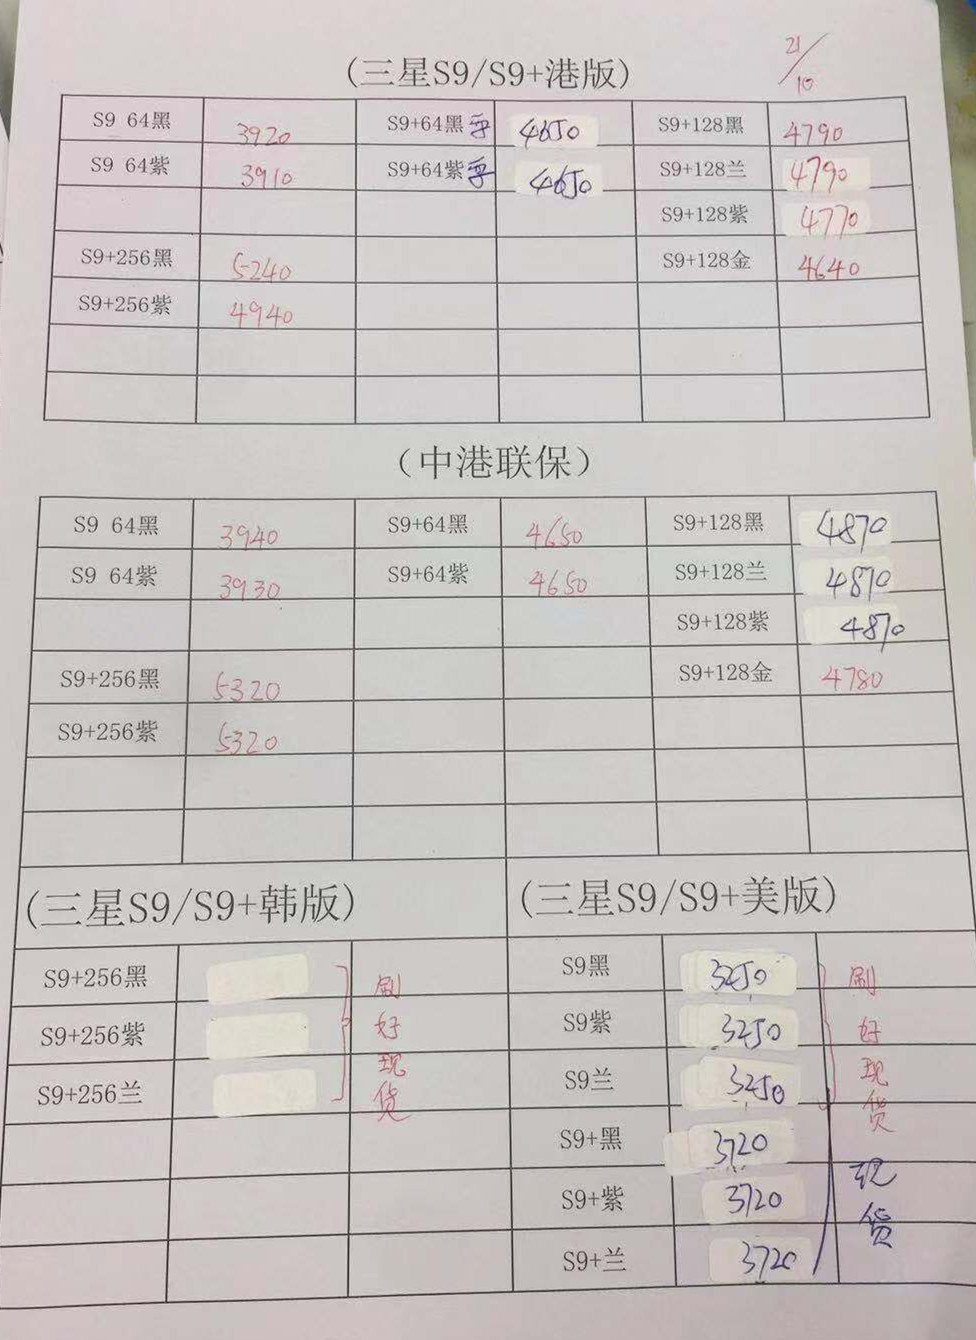 (三星S9/S9+港版)
21/10
S9 64黑 3920 S9+64黑 4650 S9+128黑 4790
S9 64紫 3910 S9+64紫 4650 S9+128兰 4790
S9+128紫 4770
S9+256黑 5240 S9+128金 4640
S9+256紫 4940
(中港联保)
S9 64黑 3940 S9+64黑 4650 S9+128黑 4870
S9 64紫 3930 S9+64紫 4650 S9+128兰 4870
S9+128紫 4870
S9+256黑 5320 S9+128金 4780
S9+256紫 5320
(三星S9/S9+韩版)
S9+256黑
S9+256紫
S9+256兰
刷好现货
(三星S9/S9+美版)
S9黑 3250
S9紫 3250
S9兰 3250
刷好现货
S9+黑 3720
S9+紫 3720
S9+兰 3720
现货